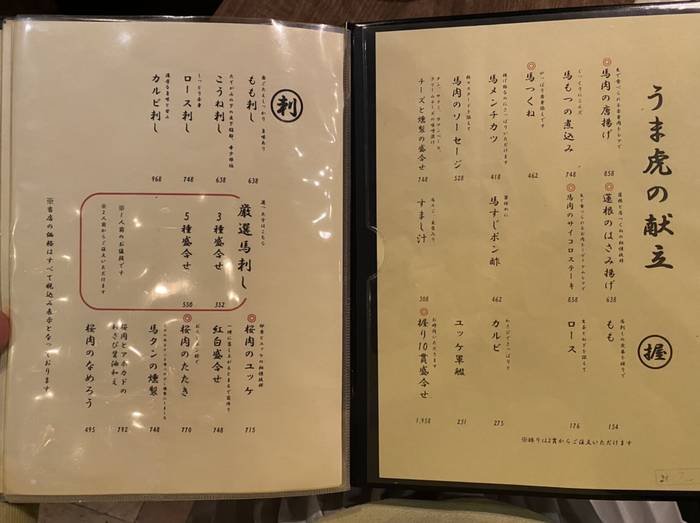 うま虎の献立
◎馬肉の唐揚げ
858
馬もつの煮込み
748
◎馬つくね
462
馬メンチカツ
418
馬肉のソーセージ
528
チーズと燻製の盛合せ
748
◎蓮根のはさみ揚げ
638
◎馬肉のサイコロステーキ
858
馬すじポン酢
462
すまし汁
308
握
もも
154
ロース
176
カルビ
275
ユッケ軍艦
231
◎握り10貫盛合せ
1,958
※握りは2貫からご注文いただけます
刺
もも刺し
638
こうね刺し
638
ロース刺し
748
カルビ刺し
968
厳選馬刺し
3種盛合せ
352
5種盛合せ
550
※1人前のお値段です
※2人前からご注文いただけます
◎桜肉のユッケ
715
紅白盛合せ
748
◎桜肉のたたき
770
馬タンの燻製
748
桜肉とアボカドの
わさび醤油和え
792
桜肉のなめろう
495
※当店の価格はすべて税込み表示となっております